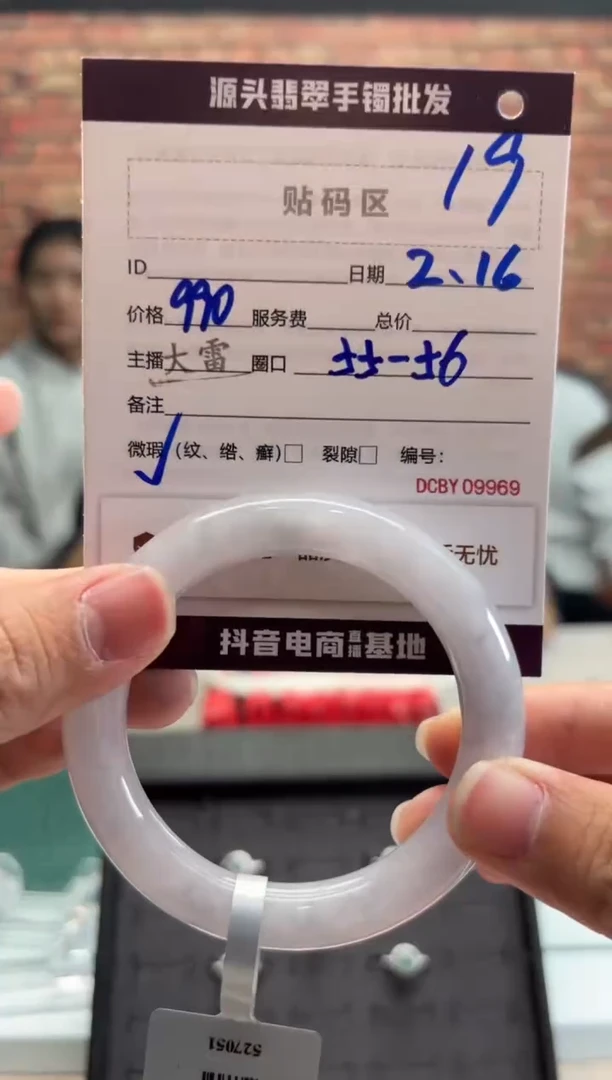 源头翡翠手镯批发
贴码区
19
ID 日期 2、16
价格 990 服务费 总价
主播 大雷 圈口 55-56
备注
微瑕√(纹、绺、癣)□ 裂隙□ 编号:
DCBY 09969
无忧
抖音电商直播基地
527051